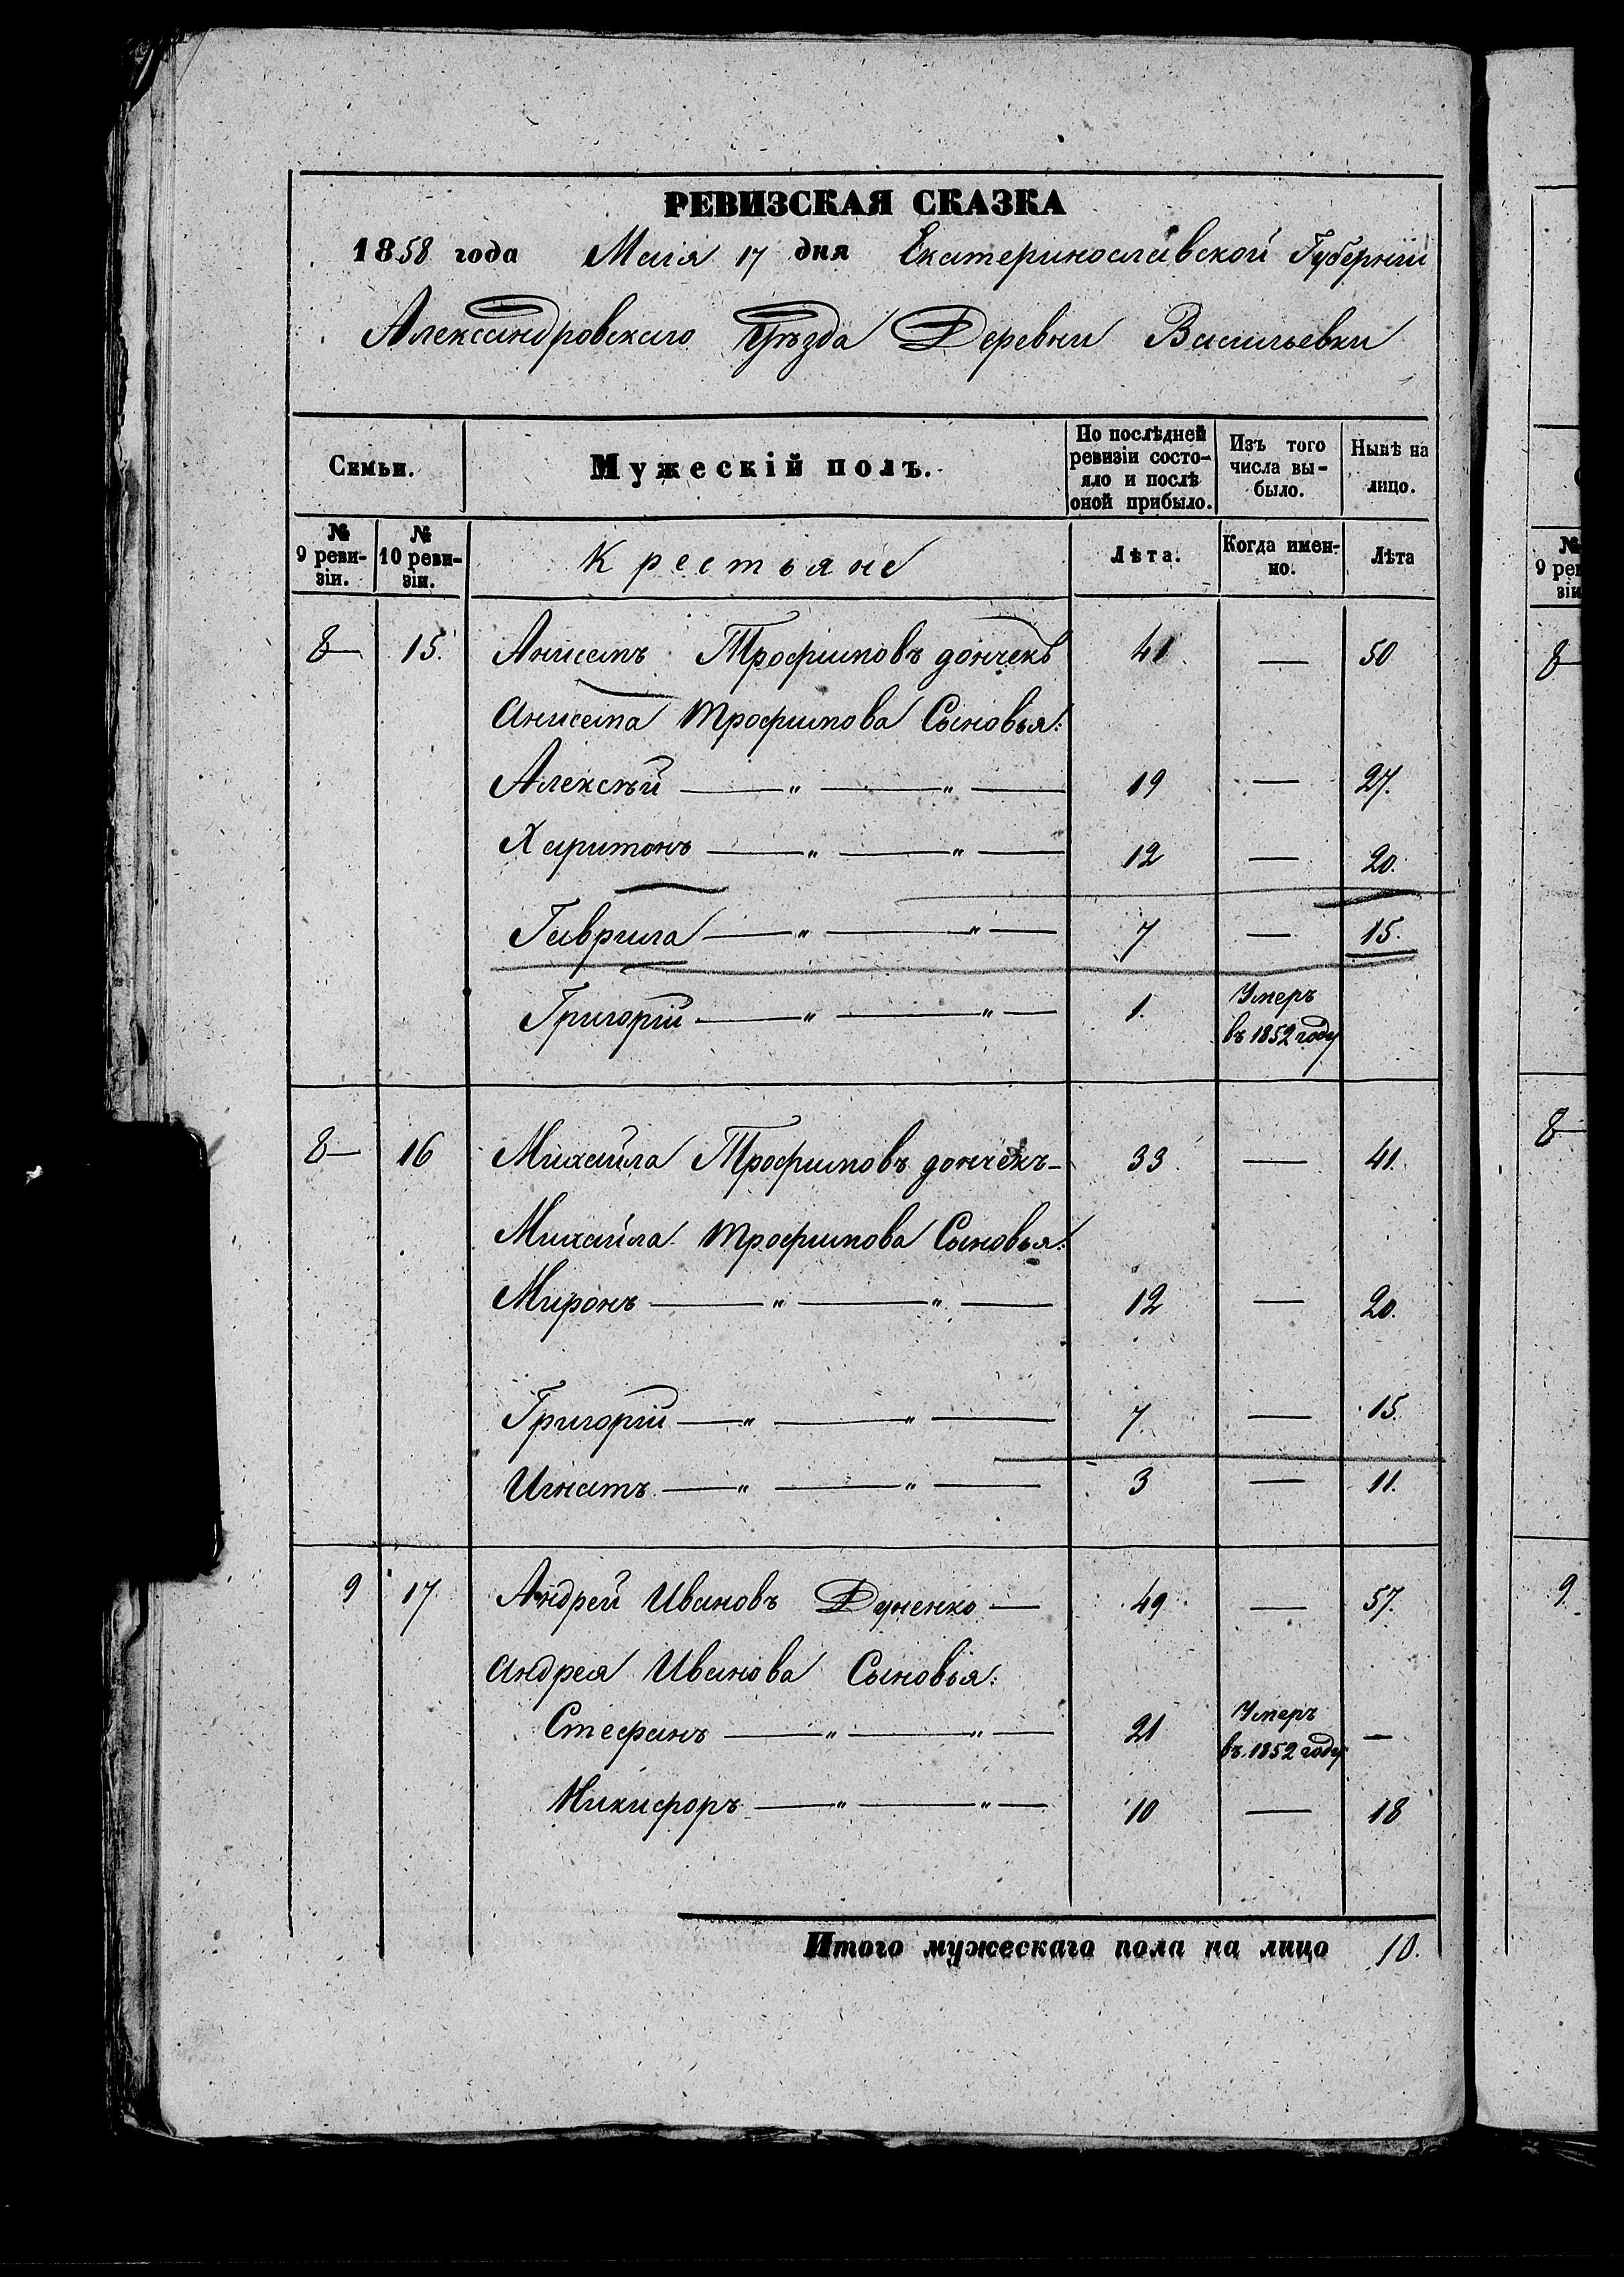 РЕВИЗСКАЯ СКАЗКА
1858 года Маія 17 дня Екатеринославской Губерніи
Александровскаго Уѣзда Деревни Васильевки
Симьи. Мужескій полъ. По послѣдней ревизіи состояло и послѣ оной прибыло. Изъ того числа выбыло. Нынѣ на лицо.
№ 9 ревизіи. № 10 ревизіи. Крестьяне Лѣта. Когда именно. Лѣта
8 — 15. Анисимъ Трофимовъ дончекъ 41 — 50
Анисима Трофимова Сыновья:
Алексѣй — " — " — 19 — 27.
Харитонъ — " — " — 12 — 20.
Гаврила — " — " — 7 — 15.
Григорій — " — " — 1. Умеръ
въ 1852 году
8 — 16 Михайла Трофимовъ дончекъ — 33 — 41.
Михайла Трофимова Сыновья:
Миронъ — " — " — 12 — 20.
Григорій — " — " — 7. — 15.
Игнатъ — " — " — 3 — 11.
9 17 Андрей Ивановъ Дуненко — 49 — 57.
Андрея Иванова Сыновья:
Стефанъ — " — " — 21 Умеръ —
въ 1852 году
Никифоръ — " — " — 10 — 18
Итого мужескаго пола на лицо 10.
№
8
8
9.